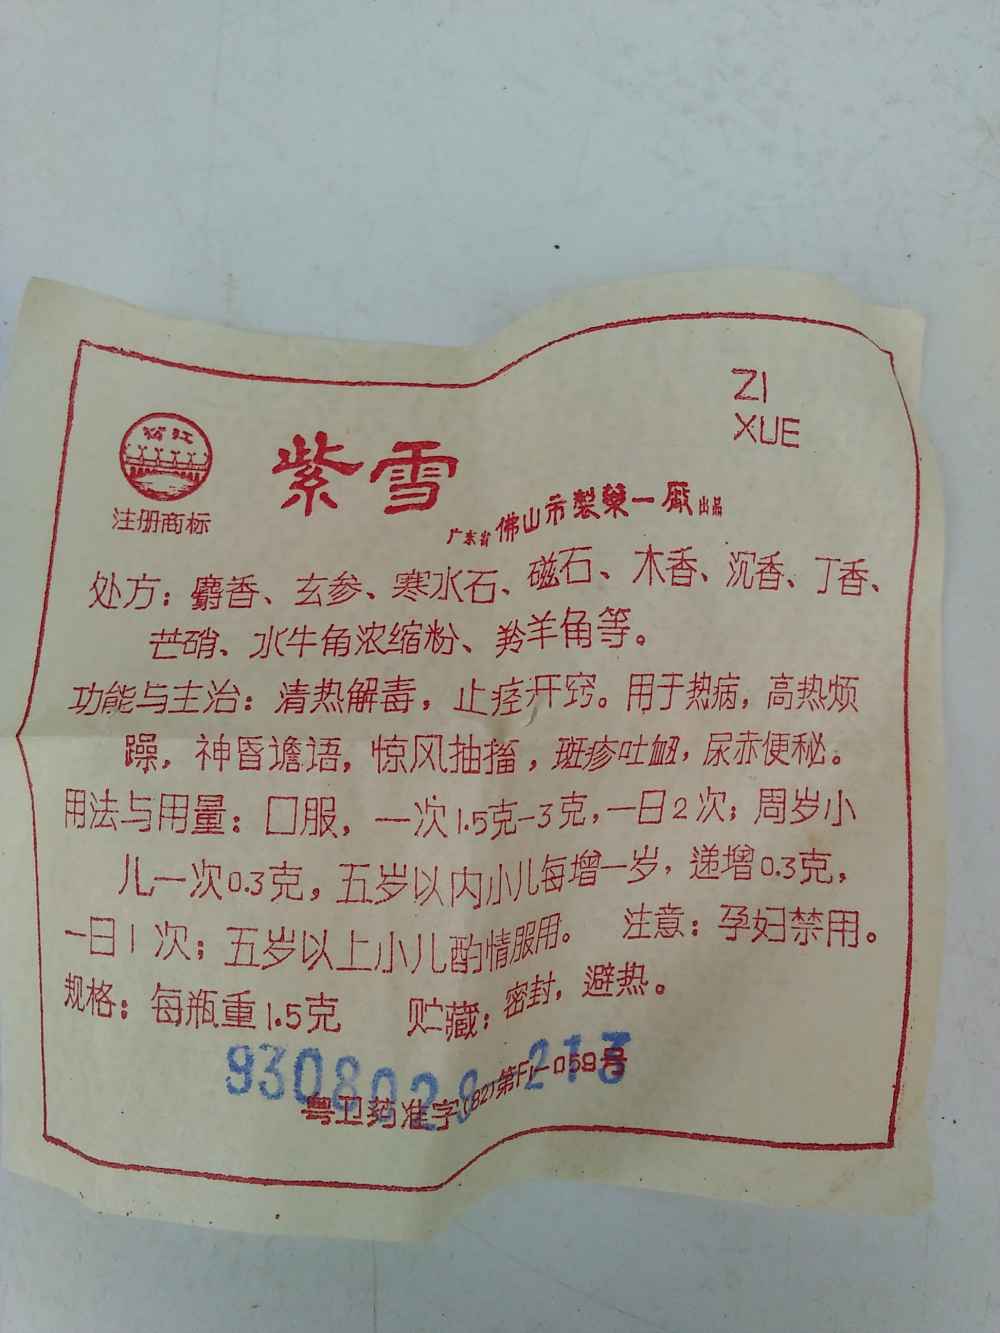 ZI
XUE
汾江
注册商标
紫雪
广东省佛山市製藥一廠出品
处方：麝香、玄参、寒水石、磁石、木香、沉香、丁香、
芒硝、水牛角浓缩粉、羚羊角等。
功能与主治：清热解毒，止痉开窍。用于热病，高热烦
躁，神昏谵语，惊风抽搐，斑疹吐衄，尿赤便秘。
用法与用量：口服，一次1.5克-3克，一日2次；周岁小
儿一次0.3克，五岁以内小儿每增一岁，递增0.3克，
一日1次；五岁以上小儿酌情服用。 注意：孕妇禁用。
规格：每瓶重1.5克 贮藏：密封，避热。
9308028 213
粤卫药准字(82)第F1-059号